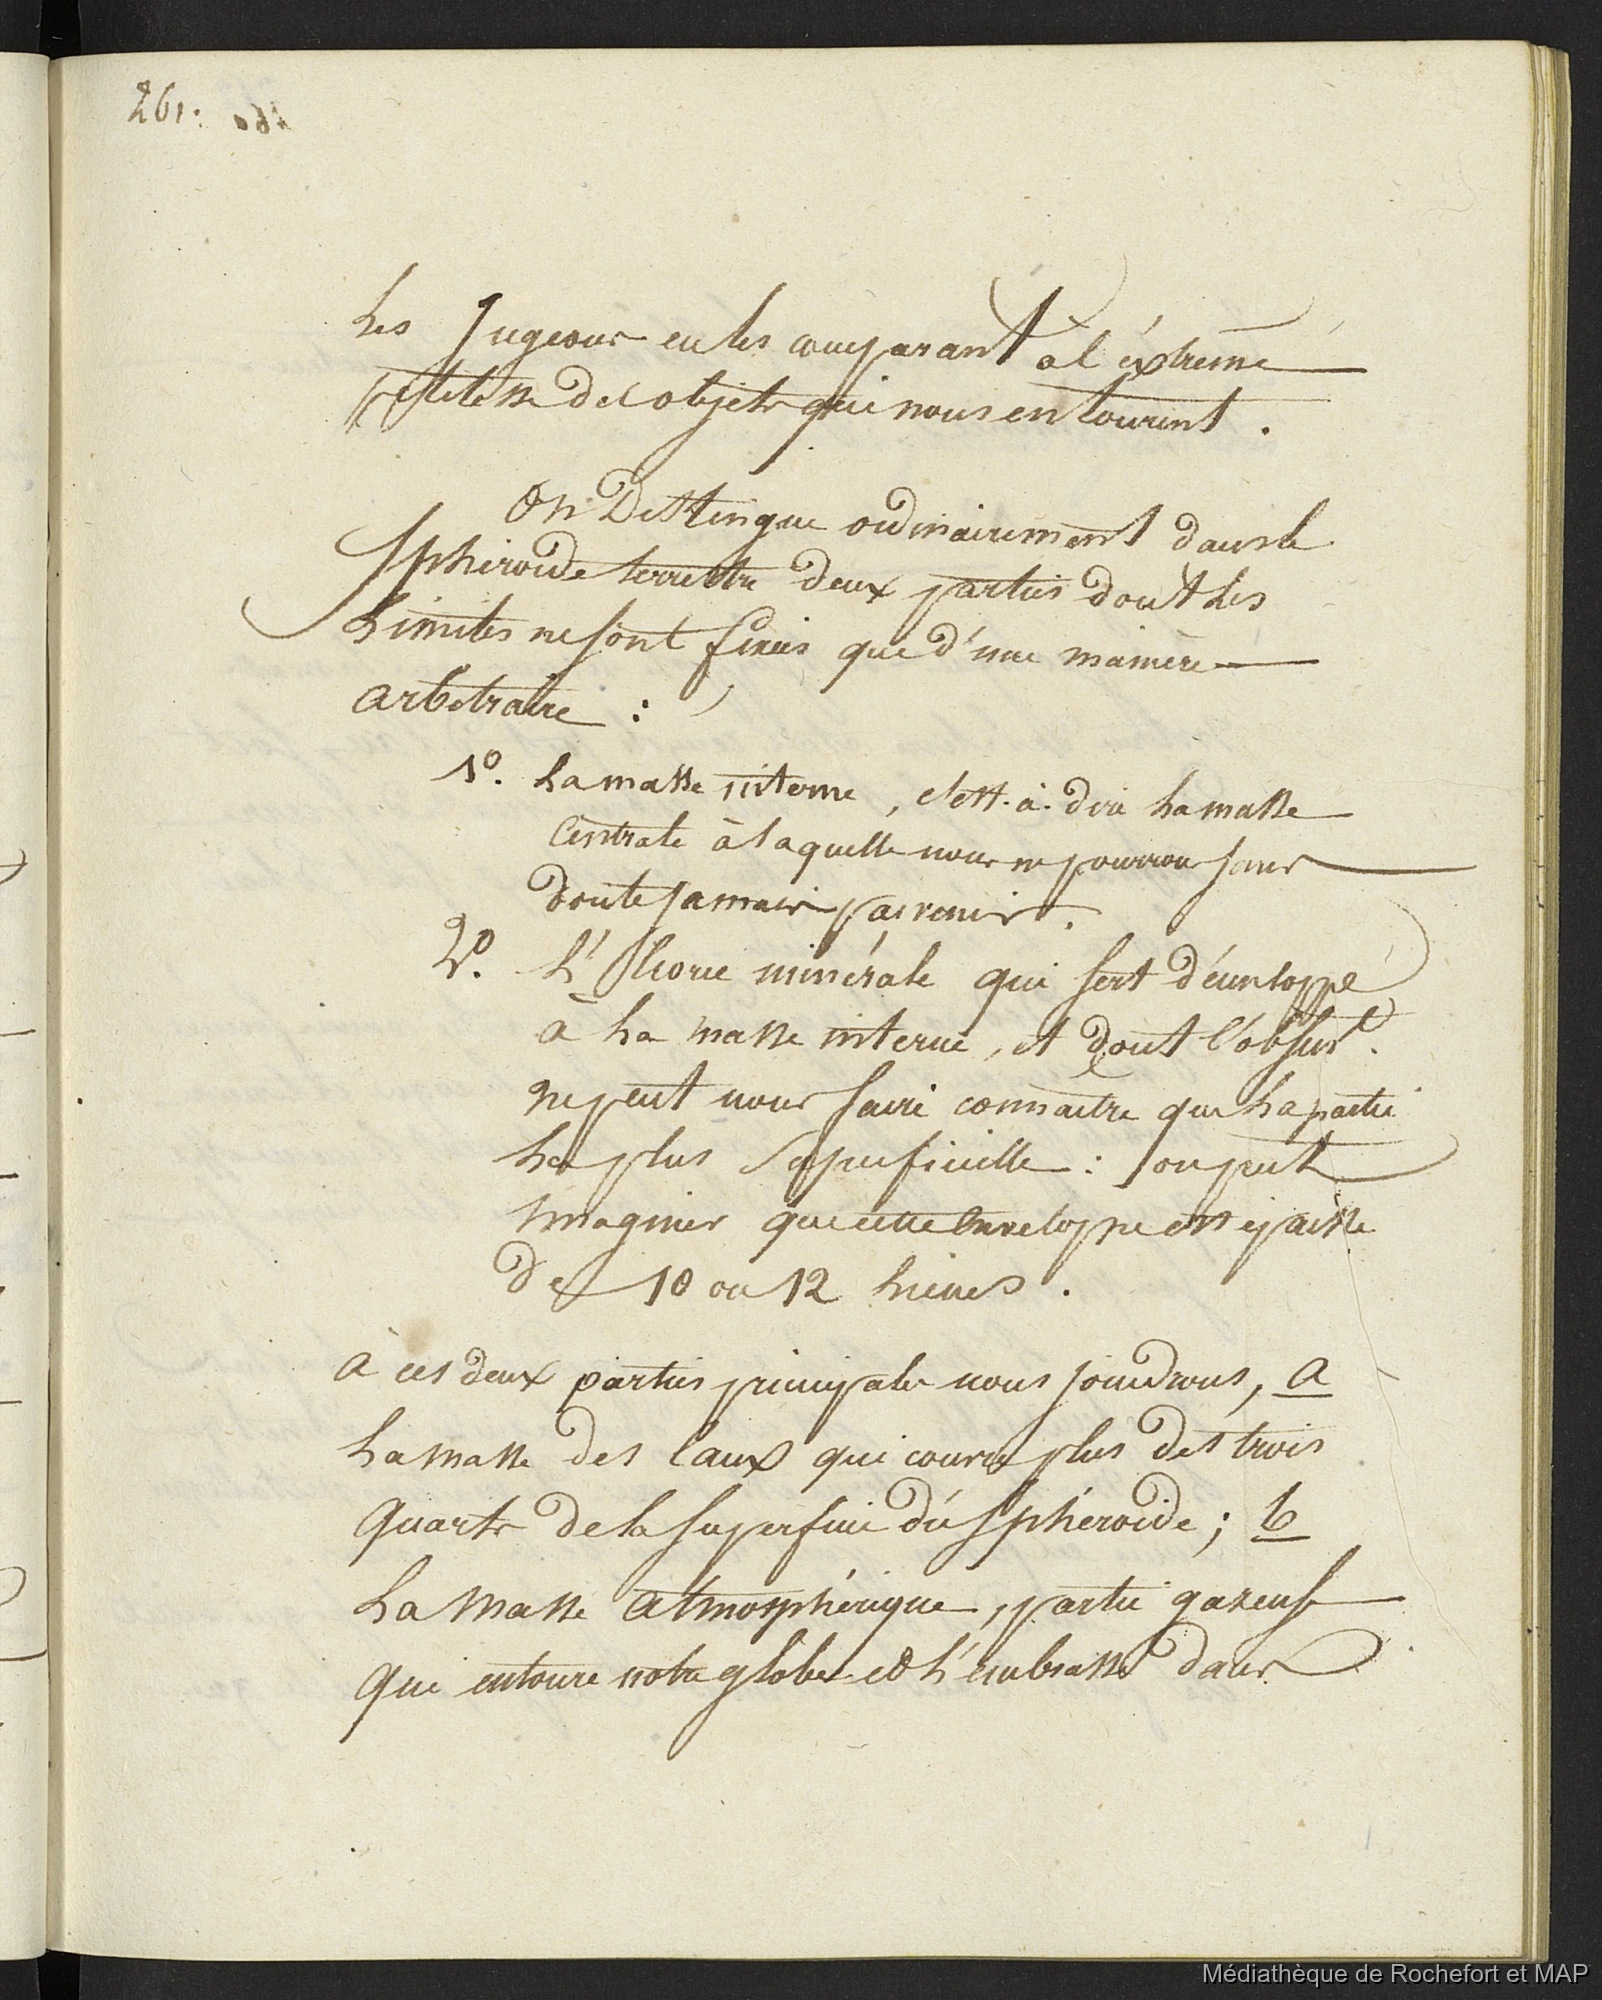 261.
les Jugeons en les comparant à l'éxtrême
petitesse des objets qui nous entourent.
On Distingue ordinairement dans le
Sphéroïde terrestre deux parties dont les
Limites ne sont fixées que d'une manière
arbitraire :
1º. La masse interne, c'est-à-dire la masse
Centrale à laquelle nous ne pourrons sans
doute jamais parvenir.
2º. L'Ecorce minérale qui sert d'enveloppe
à la masse interne, et dont l'obser.
ne peut nous faire connaître que la partie
la plus Superficielle : on peut
Imaginer que cette Enveloppe est épaisse
de 10 ou 12 lieues.
à ces deux parties principales nous joindrons, a
La masse des Eaux qui couvre plus des trois
Quarts de la superficie du Sphéroïde ; b
La Masse Atmosphérique, partie gazeuse
Qui entoure notre globe et l'embrasse dans
Médiathèque de Rochefort et MAP